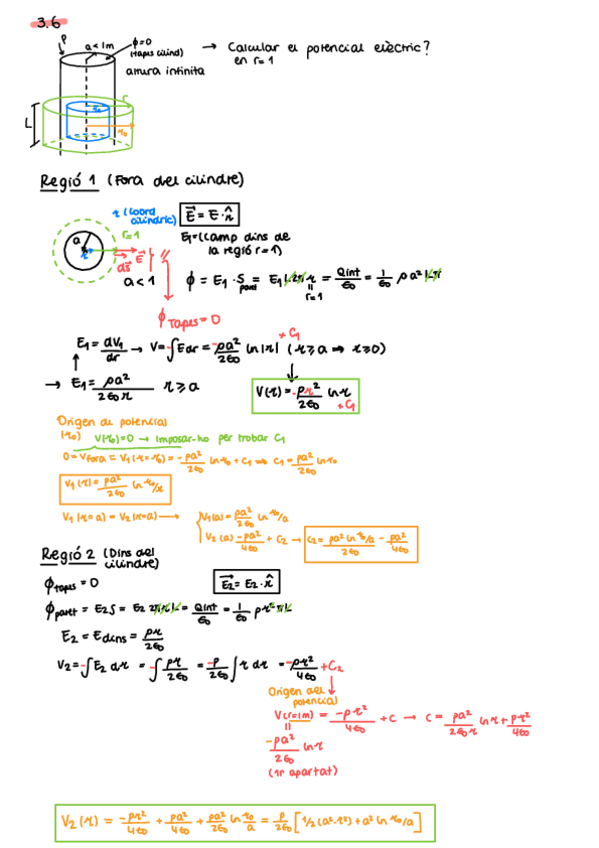 3.6
ρ
a<1m
ϕ=0
(tapes cilind)
altura infinita
→ Calcular el potencial elèctric?
en r=1
L
r
r₀
Regió 1 (Fora del cilindre)
r (coord cilindric)
r=1
a
E⃗
dS⃗
a<1
E⃗ = E·r̂
E₁=(camp dins de
la regió r=1)
ϕ = E₁·S paret = E₁ L2π r = Qint/ε₀ = 1/ε₀ ρ a² Lπ
r=1
ϕ Tapes = 0
E₁ = dV₁/dr → V=-∫Edr = -ρa²/2ε₀ ln|r| + C₁ (r≥a ⇒ r≥0)
→ E₁ = ρa²/2ε₀r r≥a
V(r) = -ρr²/2ε₀ ln r + C₁
Origen de potencial
(r₀) V(r₀)=0 → Imposar-ho per trobar C₁
0 = Vfora = V₁(r=r₀) = -ρa²/2ε₀ ln r₀ + C₁ ⇒ C₁ = ρa²/2ε₀ ln r₀
V₁(r) = ρa²/2ε₀ ln r₀/r
V₁(r=a) = V₂(r=a) →
V₁(a) = ρa²/2ε₀ ln r₀/a
V₂(a) -ρa²/4ε₀ + C₂ → C₂ = ρa² ln r₀/a /2ε₀ - ρa²/4ε₀
Regió 2 (Dins del
cilindre)
ϕ tapes = 0
E⃗₂ = E₂·r̂
ϕ paret = E₂S = E₂ 2πrL = Qint/ε₀ = 1/ε₀ ρr²πL
E₂ = Edins = ρr/2ε₀
V₂ = -∫E₂ dr = -∫ρr/2ε₀ = -ρ/2ε₀ ∫r dr = -ρr²/4ε₀ + C₂
Origen del
potencial
V(r=1m) = -ρr²/4ε₀ + C → C = ρa²/2ε₀r ln r + ρr²/4ε₀
=
-ρa²/2ε₀ ln r
(1r apartat)
V₂(r) = -ρr²/4ε₀ + ρa²/4ε₀ + ρa²/2ε₀ ln r₀/a = ρ/2ε₀ [1/2(a²-r²) + a² ln r₀/a]